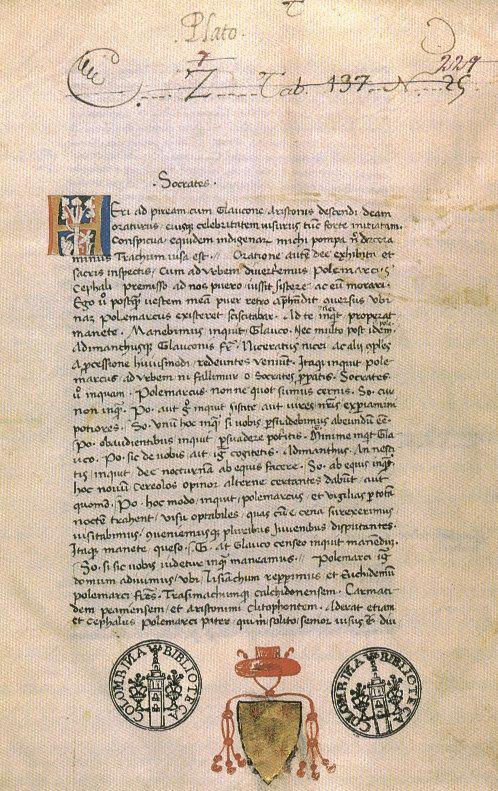 Plato.
7
Z Tab. 137. N. 25
229
·Socrates·
HEri ad piream cum Glaucone Aristonis descendi deam
oraturus · eiusq celebritatem visurus tuc forte initiatam.
Conspicua equidem indigenar michi pompa
Trachum visa est · // Oratione aute dee exhibita et
sacris inspectis / Cum ad urbem diverteremus Polemarcus
Cephali premisso ad nos puero iussit sistere ac eu morari.
Ego u postq vestem mea puer retro aphendit aversus ubi
nā Polemarcus existeret sciscitabar · Ad te inqt properat
manete · Manebimus inquit Glauco · Nec multo post idem
Adimanthusq Glauconis fr · Niceratus nicei ac alii qples
a pcessione huiusmodi redeuntes veniunt · Itaq inquit pole
marcus ad urbem ni fallimur o Socrates · Socrates
u inquam · Polemarcus nonne quot sumus cernis · So · cur
non inq · Po · aut g inquit sistite aut vires nras expiamini
potiores · So · unu hoc inq si vobis psuadebimus abeundu ee
Po · obaudientibus inquit psuadere potitis · Minime inqt Gla
uco · Po · sic de nobis aut ig cogitetis · Adimanthus · An nesci
tis inquit dec nocturna ab equus facere · So · ab equis inq
hoc novu cereolos opinor alterne certantes dabut aut
quomo · Po · hoc modo inquit polemarcus et vigilias p tota
nocte trahent / visu optabiles / quas cu e cena surexerimus
visitabimus / queniemusq pluribus iuvenibus disputantes.
Itaq manete queso · G · at Glauco censeo inquit manedu
So · si sic vobis videtur inq maneamus · // Polemarci ig
domum adivimus / ubi Lisiachum repperimus et Euchidemu
polemarci fres · Trasimachumq calchidonensem · Carmati
dem peamensem et aristonimi clitophontem · Aderat etiam
et Cephalus Polemarci pater / qui m solito senior visus e diu
COLOMBINA BIBLIOTECA
COLOMBINA BIBLIOTECA